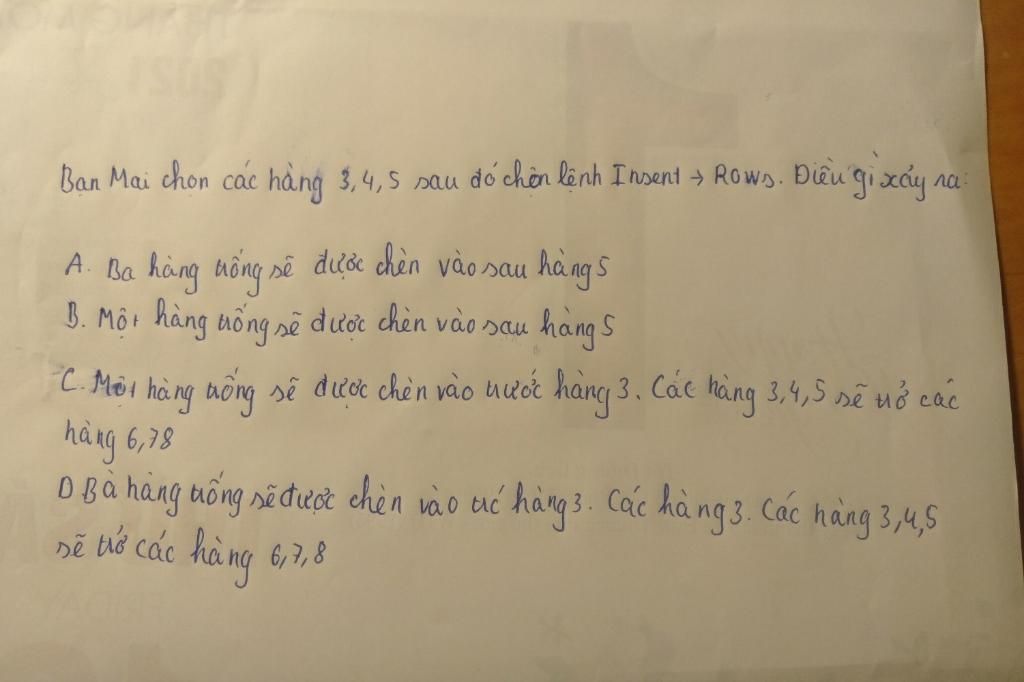 Bạn Mai chọn các hàng 3,4,5 sau đó chọn lệnh Insent → Rows. Điều gì xảy ra:
A. Ba hàng trống sẽ được chèn vào sau hàng 5
B. Một hàng trống sẽ được chèn vào sau hàng 5
C. Một hàng trống sẽ được chèn vào trước hàng 3. Các hàng 3,4,5 sẽ trở các
hàng 6,78
D Bà hàng trống sẽ được chèn vào trć hàng 3. Các hàng 3. Các hàng 3,4,5
sẽ trở các hàng 6,7,8